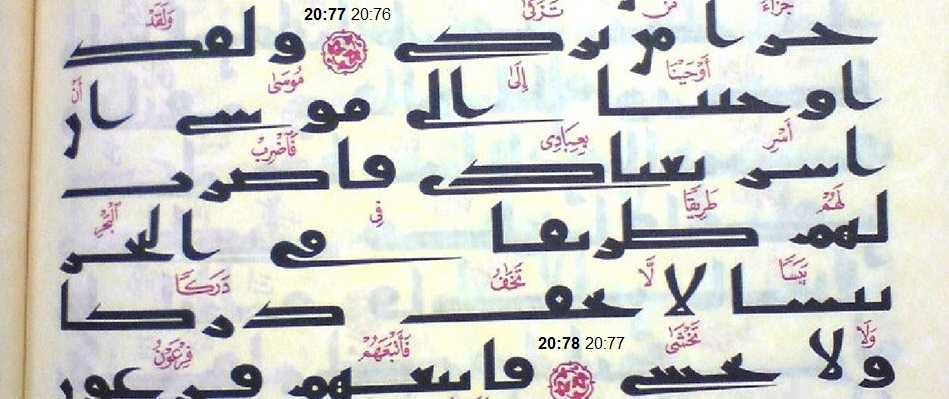 جَزَآءُ مَن تَزَكَّىٰ 20:77 20:76 وَلَقَدْ
حزا من تزكى ولقد
أَوْحَيْنَآ إِلَىٰ مُوسَىٰ أَنْ
اوحينا الى موسى ان
أَسْرِ بِعِبَادِى فَٱضْرِبْ
اسر بعبادى فاضرب
لَهُمْ طَرِيقًا فِى ٱلْبَحْرِ
لهم طريقا فى البحر
يَبَسًا لَّا تَخَٰفُ دَرَكًا
يبسا لا تخف دركا
وَلَا تَخْشَىٰ 20:78 20:77 فَأَتْبَعَهُمْ فِرْعَوْنُ
ولا تخشى فاتبعهم فرعون